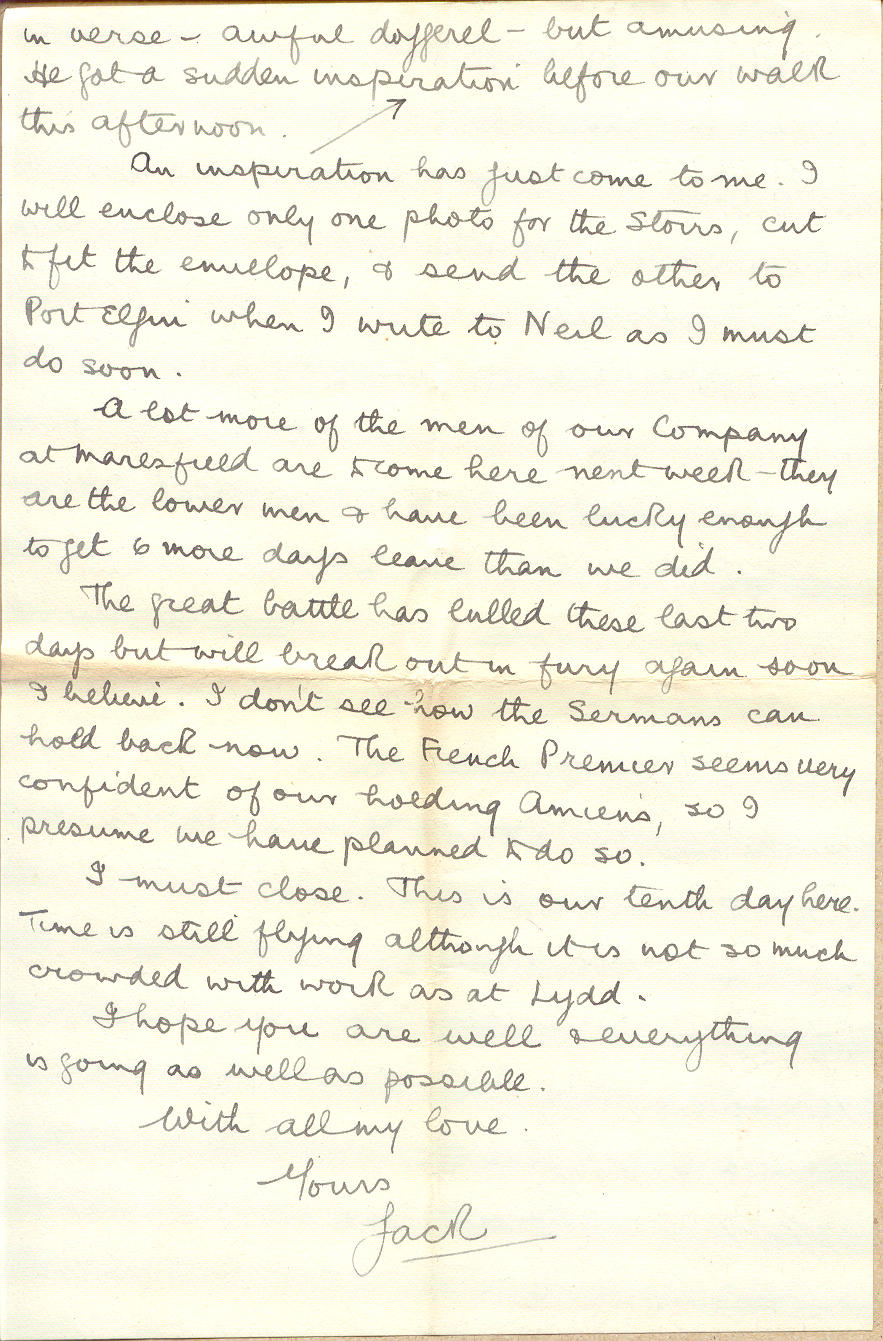 in verse – awful doggerel – but amusing.
He got a sudden inspiration before our walk
this afternoon.
An inspiration has just come to me. I
will enclose only one photo for the Stoirs, cut
to fit the envelope, & send the other to
Port Elgin when I write to Neil as I must
do soon.
A lot more of the men of our Company
at Maresfield are to come here next week – they
are the lower men & have been lucky enough
to get 6 more days leave than we did.
The great battle has lulled these last two
days but will break out in fury again soon
I believe. I don't see how the Germans can
hold back now. The French Premier seems very
confident of our holding Amiens, so I
presume we have planned to do so.
I must close. This is our tenth day here.
Time is still flying although it is not so much
crowded with work as at Lydd.
I hope you are well & everything
is going as well as possible.
With all my love.
Yours
Jack